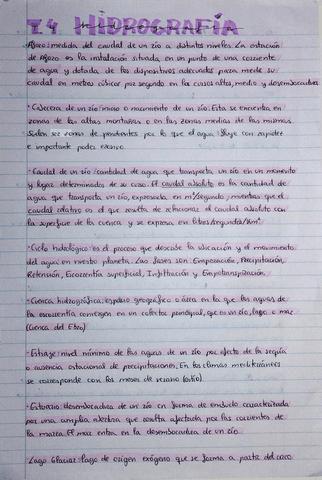 T.4 HIDROGRAFÍA
Aforo: medida del caudal de un río a distintos niveles. La estación
de aforo es la instalación situada en un punto de una corriente
de agua y dotada de los dispositivos adecuados para medir su
caudal en metros cúbicos por segundo en los cursos altos, medio y desembocadura
· Cabecera de un río: inicio o nacimiento de un río. Esta se encuentra en
zonas de las altas montañas o en las zonas medias de las mismas.
Suelen ser zonas de pendientes por lo que el agua fluye con rapidez
e importante poder erosivo.
· Caudal de un río: cantidad de agua que transporta un río en un momento
y lugar determinados de su curso. El caudal absoluto es la cantidad de
agua que transporta un río, expresada en m³/segundo, mientras que el
caudal relativo es el que resulta de relacionar el caudal absoluto con
la superficie de la cuenca y se expresa en litros/segundo/Km².
· Ciclo hidrológico: es el proceso que describe la ubicación y el movimiento
del agua en nuestro planeta. Las fases son: Evaporación, Precipitación,
Retención, Escorrentía superficial, Infiltración y Evapotranspiración.
· Cuenca hidrográfica: espacio geográfico o área en la que las aguas de
la escorrentía convergen en un colector principal, que es un río, lago o mar
(Cuenca del Ebro)
· Estiaje: nivel mínimo de las aguas de un río por efecto de la sequía
o ausencia estacional de precipitaciones. En los climas mediterráneos
se corresponde con los meses de verano (estío)
· Estuario: desembocadura de un río en forma de embudo caracterizada
por una amplia abertura que resulta afectada por las corrientes de
la marea. El mar entra en la desembocadura de un río.
Lago Glaciar: lago de origen exógeno que se forma a partir del